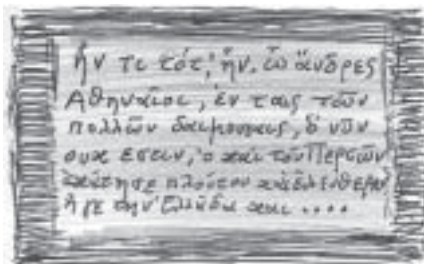 ἦν τι τότ', ἦν, ὦ ἄνδρες
Ἀθηναῖοι, ἐν ταῖς τῶν
πολλῶν διανοίαις, ὃ νῦν
οὐκ ἔστιν, ὃ καὶ τοῦ Περσῶν
ἐκράτησε πλούτου καὶ ἐλευθέραν
ἦγε τὴν Ἑλλάδα καὶ ....